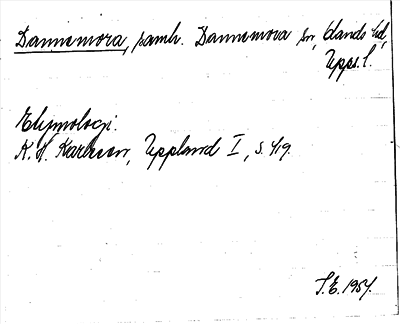 Dannemora, samh. Dannemora sn, Olands hd,
Upps. l.
Etymologi.
K. H. Karlsson, Uppland I, s. 419.
S.E. 1957.